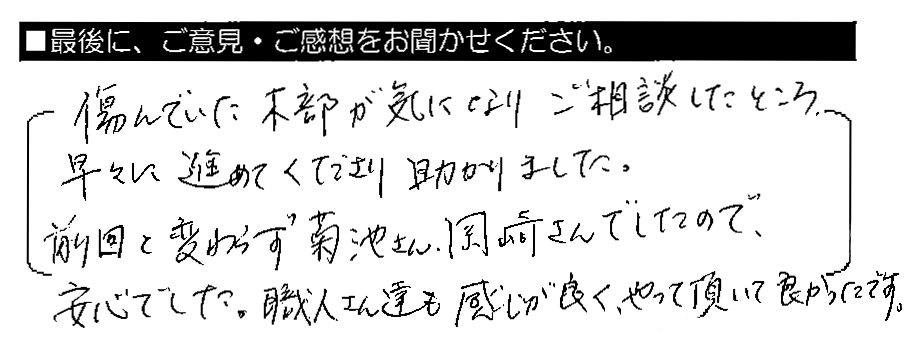 ■最後に、ご意見・ご感想をお聞かせください。
傷んでいた木部が気になりご相談したところ、
早々に進めてくださり助かりました。
前回と変わらず菊池さん、岡崎さんでしたので、
安心でした。職人さん達も感じが良く、やって頂いて良かったです。